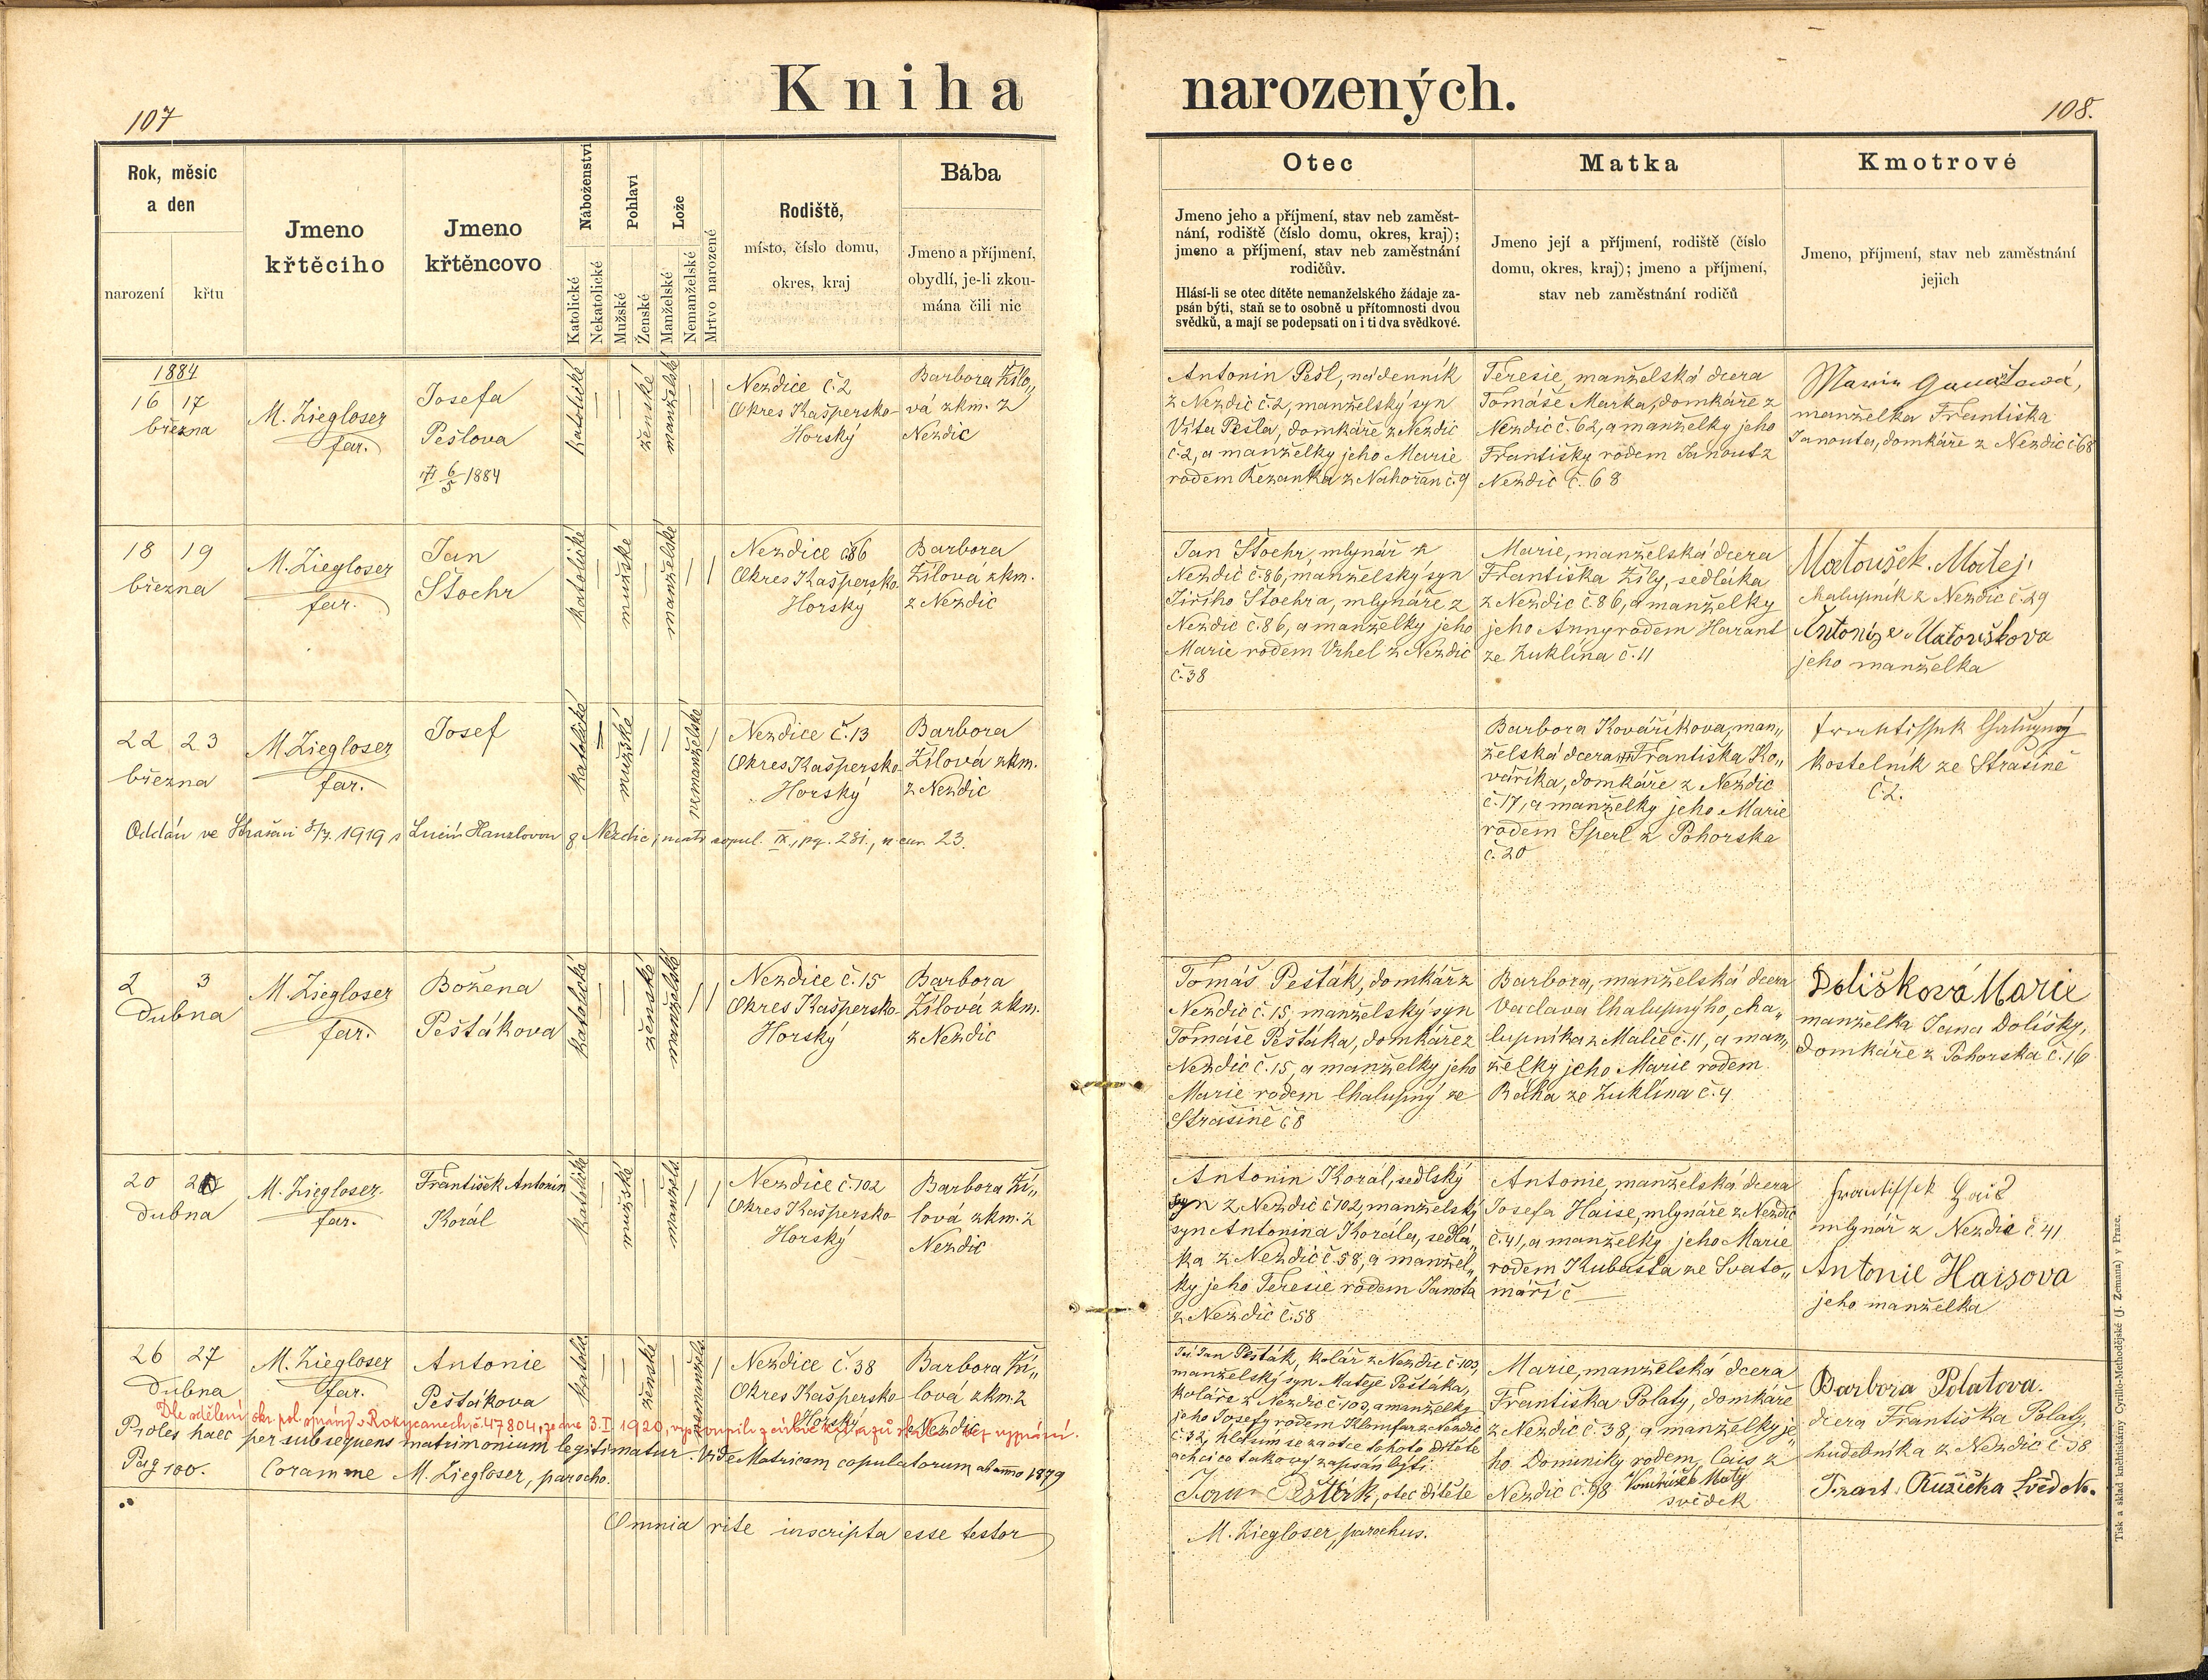 107
Kniha
narozených.
108.
Rok, měsíc
a den
narození
křtu
Jmeno
křtěcího
Jmeno
křtěncovo
Náboženství
Katolické
Nekatolické
Pohlaví
Mužské
Ženské
Lože
Manželské
Nemanželské
Mrtvo narozené
Rodiště,
místo, číslo domu,
okres, kraj
Bába
Jmeno a příjmení,
obydlí, je-li zkou-
mána čili nic
Otec
Jmeno jeho a příjmení, stav neb zaměst-
nání, rodiště (číslo domu, okres, kraj);
jmeno a příjmení, stav neb zaměstnání
rodičův.
Hlásí-li se otec dítěte nemanželského žádaje za-
psán býti, staň se to osobně u přítomnosti dvou
svědků, a mají se podepsati on i ti dva svědkové.
Matka
Jmeno její a příjmení, rodiště (číslo
domu, okres, kraj); jmeno a příjmení,
stav neb zaměstnání rodičů
Kmotrové
Jmeno, příjmení, stav neb zaměstnání
jejich
1884
16 17
března
M. Ziegloser
far.
Josefa
Pešlova
6/5 1884
katolické
ženské
manželské
Nezdice č.2
Okres Kašpersko-
Horský
Barbora Žílo„
vá zkm. z
Nezdic
Antonin Pešl, nádenník
z Nezdic č.2, manželský syn
Víta Pešla, domkáře z Nezdic
č.2, a manželky jeho Marie
rodem Řezanka z Nahořan č.9
Teresie, manželská dcera
Tomáše Marka, domkáře z
Nezdic č. 62, a manželky jeho
Františky rodem Janout z
Nezdic č. 68
manželka Františka
Janouta, domkáře z Nezdic č 68
18 19
března
M. Ziegloser
far.
Jan
Štochr
katolické
mužské
manželské
Nezdice č86
Okres Kašpersko-
Horský
Barbora
Žílová zkm.
z Nezdic
Jan Štochr, mlynář z
Nezdic č.86, manželský syn
Jiřího Štochra, mlynáře z
Nezdic č.86, a manželky jeho
Marie rodem Vrhel z Nezdic
č.38
Marie, manželská dcera
Františka Žíly, sedláka
z Nezdic č.86, a manželky
jeho Anny rodem Harant
ze Zuklína č.11
Matoušek Matej,
chalupník z Nezdic č.29
Antonize Matouškova
jeho manželka
22 23
března
M. Ziegloser
far.
Josef
katolické
mužské
nemanželské
Nezdice č.13
Okres Kašpersko-
Horský
Barbora
Žílová zkm.
z Nezdic
Barbora Kovaříkova, man„
želská dcera Františka Ko„
vaříka, domkáře z Nezdic
č.17, a manželky jeho Marie
rodem Šperl z Pohorska
č.20
Frantissek Chalupný
kostelník ze Strašíně
č.2.
Oddán ve Strašíni 1919 s Lucií Hanzlovou z Nezdic; matr. copul. IX., pg. 281., n. cur. 23.
2 3
Dubna
M. Ziegloser
far.
Božena
Peštákova
katolické
ženské
manželské
Nezdice č.15
Okres Kašpersko-
Horský
Barbora
Žílová zkm.
z Nezdic
Tomáš Pešták, domkář z
Nezdic č.15, manželský syn
Tomáše Peštáka, domkáře z
Nezdic č.15, a manželky jeho
Marie rodem Chalupný ze
Strašíně č8
Barbora, manželská dcera
Vaclava Chalupnýho, cha„
lupníka z Maleč č.11, a man„
želky jeho Marie rodem
Bálka ze Zuklína č.4
Dolišková Marie
manželka Jana Dolišky,
domkáře z Pohorska č.16
20
dubna
M. Ziegloser
far.
František Antonin
Korál
katolické
mužské
manžels.
Nezdice č.102
Okres Kašpersko
Horský
Barbora Ží„
lová zkm. z
Nezdic
Antonin Korál, sedlský
syn z Nezdic č102, manželský
syn Antonina Korála, sedlá„
ka z Nezdic č.58, a manžel„
ky jeho Teresie rodem Janota
z Nezdic č.58
Antonie, manželská dcera
Josefa Haise, mlynáře z Nezdic
č.41, a manželky jeho Marie
rodem Kubašta ze Svato„
máří č
Frantissek Hais
mlynář z Nezdic č 41
Antonie Haisova
jeho manželka
26 27
Dubna
M. Ziegloser
far.
Antonie
Peštákova
katolic.
ženské
nemanžels.
Nezdice č. 38
Okres Kašpersko
Horský
Barbora Ží„
lová zkm. z
Nezdic
Jan Pešták, kolář z Nezdic č.103,
manželský syn Mateje Peštáka,
koláře z Nezdic č.103, a manželky
jeho Josefy rodem Klomfar z Nezdic
č 32, hlásím se za otce tohoto dítěte
a chci co takový zapsán býti.
Jan Pešták, otec dítěte
Marie, manželská dcera
Františka Polaty, domkáře
z Nezdic č.38, a manželky je„
ho Dominiky rodem Cais z
Nezdic č.98 Vondrášek Matěj
svědek
Barbora Polatova.
dcera Františka Polaty,
hudebníka z Nezdic č 38
Frant. Růžička Svědek.
Dle sdělení okr. pol. správy v Rokycanech, č. 47804, ze dne 3.I 1920, vystoupila z církve kat. a zůst. bez vyznání.
Proles haec per subsequens matrimonium legitimatur. Vide Matricam copulatorum ab anno 1879
Pag 100. Coram me M. Ziegloser, parocho.
Omnia rite inscripta esse testor
M. Ziegloser, parochus.
Tisk a sklad knihtiskárny Cyrillo-Methodějské (J. Zeman) v Praze.